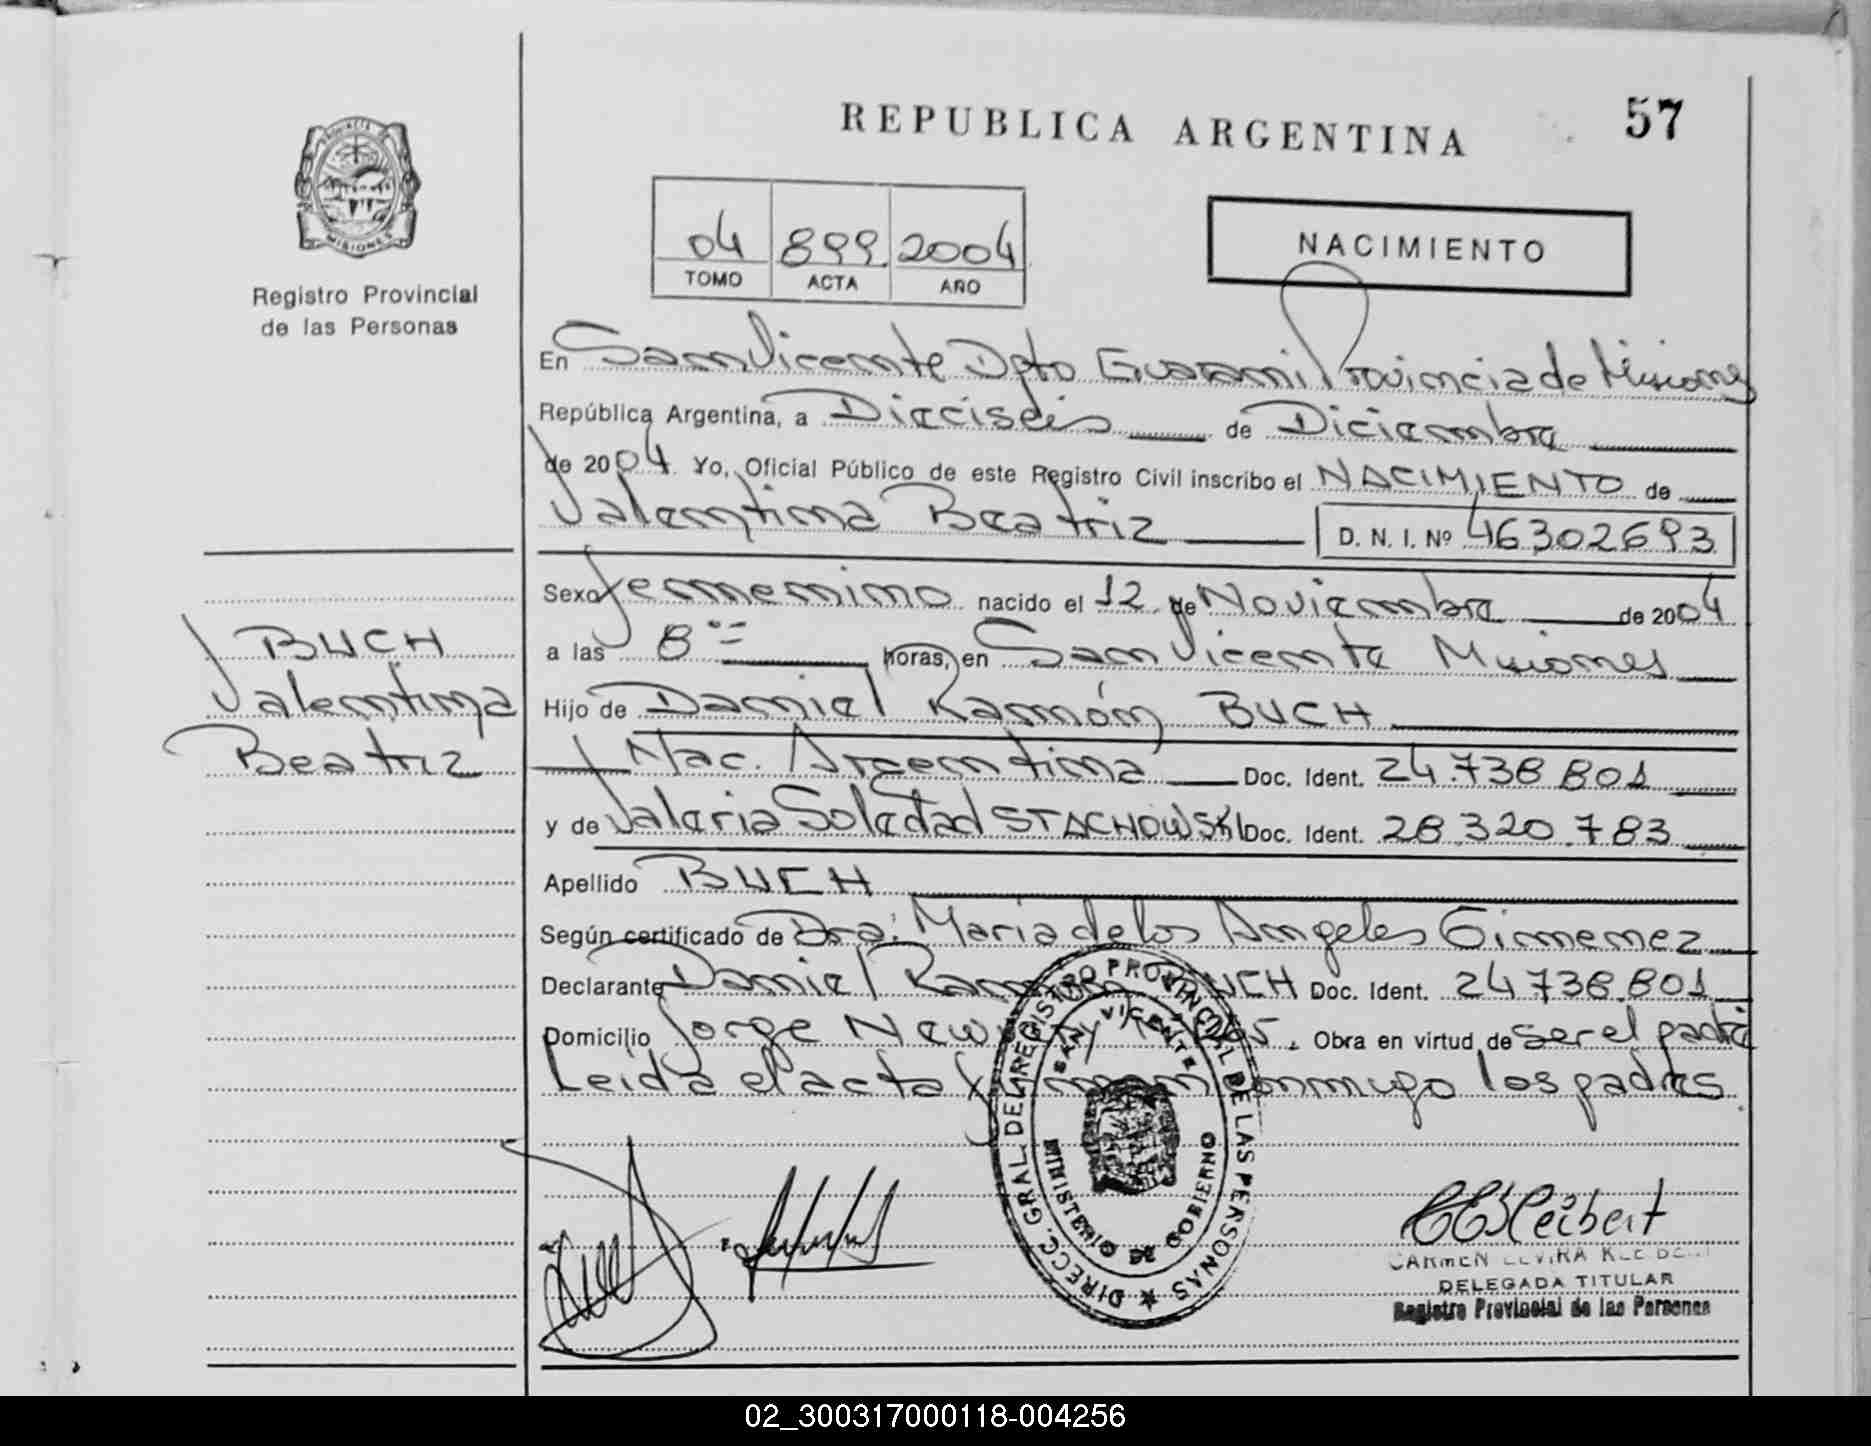 REPUBLICA ARGENTINA
57
PROVINCIA DE
MISIONES
Registro Provincial
de las Personas
04 899 2004
TOMO ACTA AÑO
NACIMIENTO
En San Vicente Dpto Guarani Provincia de Misiones
República Argentina, a Dieciseis de Diciembre
de 2004 Yo, Oficial Público de este Registro Civil inscribo el NACIMIENTO de
Valentina Beatriz D. N. I. Nº 46302693
Sexo femenino nacido el 12 de Noviembre de 2004
a las 8 horas, en San Vicente Misiones
BUCH
Valentina
Beatriz
Hijo de Daniel Ramón BUCH
Nac. Argentina Doc. Ident. 24.738 801
y de Valeria Soledad STACHOWSKI Doc. Ident. 28.320.783
Apellido BUCH
Según certificado de Dra. Maria de los Angeles Gimenez
Declarante Daniel Ramón BUCH Doc. Ident. 24 738.801
Domicilio Jorge Newbery . Obra en virtud de ser el padre
Leida el acta firman conmigo los padres
DIRECC. GRAL. DEL REGISTRO PROVINCIAL DE LAS PERSONAS
SAN VICENTE
MINISTERIO DE GOBIERNO
CEKleibert
CARMEN ELVIRA KLEIBERT
DELEGADA TITULAR
Registro Provincial de las Personas
02_300317000118-004256